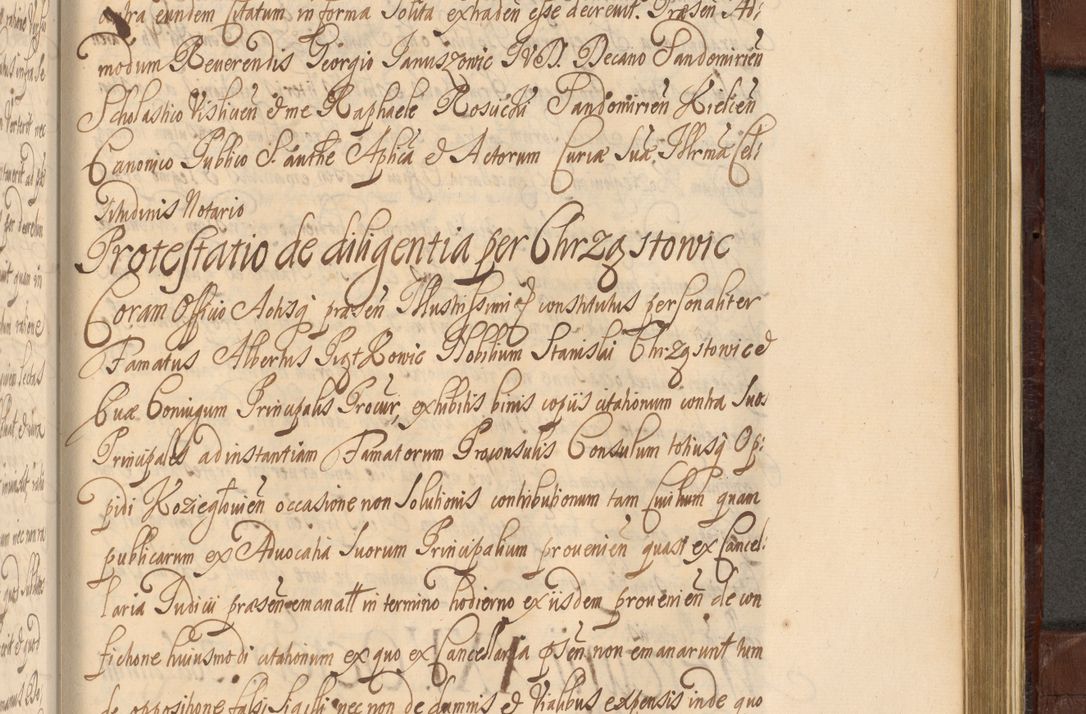 contra eundem Citatum in forma solita extraden esse decrevit. Præsen Ad:
modum Reverendis Georgio Januszowic I V D. Decano Sandomirien
Scholastico Visliuen & me Raphaele Rosucki Sandomirien Kielcien
Canonico Publico S. authe Aplica & Actorum Curiæ Suæ Illrmæ Celsi
titudinis Notario
Protestatio de diligentia per Chrzą stowic
Coram Officio Actisq præsen Illustrissimi & constitutus personaliter
Famatus Albertus Piątkowic Nobilium Stanislai Chrzą stowic &
Evæ Coniugum Principalis Procur, exhibitis binis copiis citationum contra suos
Principales ad instantiam Famatorum Proconsulis Consulum totiusq Op:
pidi Koziegłowien occasione non solutionis contributionum tam civilium quam
publicarum ex Advocatia suorum Principalium provenien quasi ex Cancel:
laria Judicii præsen emanatt in termino hodierno ex iisdem provenien de con
fictione huiusmodi citationum ex quo ex Cancellaria psen non emanarunt tum
de oppositione falsi sigilli nec non de damnis & vialibus expensis inde quo